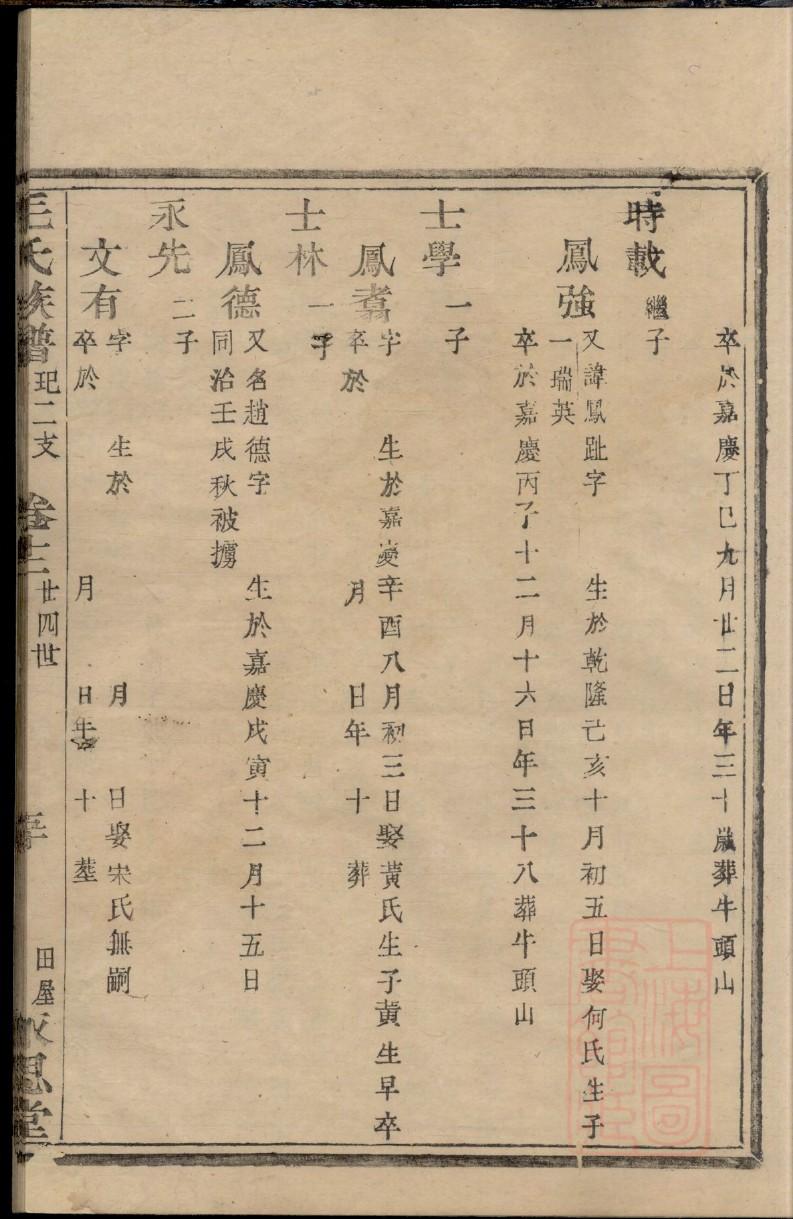 卒於嘉慶丁巳九月廿二日年三十歲葬牛頭山
時載 繼子
鳳強 又諱鳳趾字 生於乾隆己亥十月初五日娶何氏生子
一瑞英
卒於嘉慶丙子十二月十六日年三十八葬牛頭山
士學 一子
鳳翥 字 生於嘉慶辛酉八月初三日娶黃氏生子黃生早卒
卒於 月 日年 十 葬
士林 一子
鳳德 又名趙德字 生於嘉慶戊寅十二月十五日
同治壬戌秋被擄
永先 二子
文有 字 生於 月 日娶宋氏無嗣
卒於 月 日年 十 塟
王氏族譜 玘二支 卷十二 廿四世 田屋 思堂
上海圖書館藏